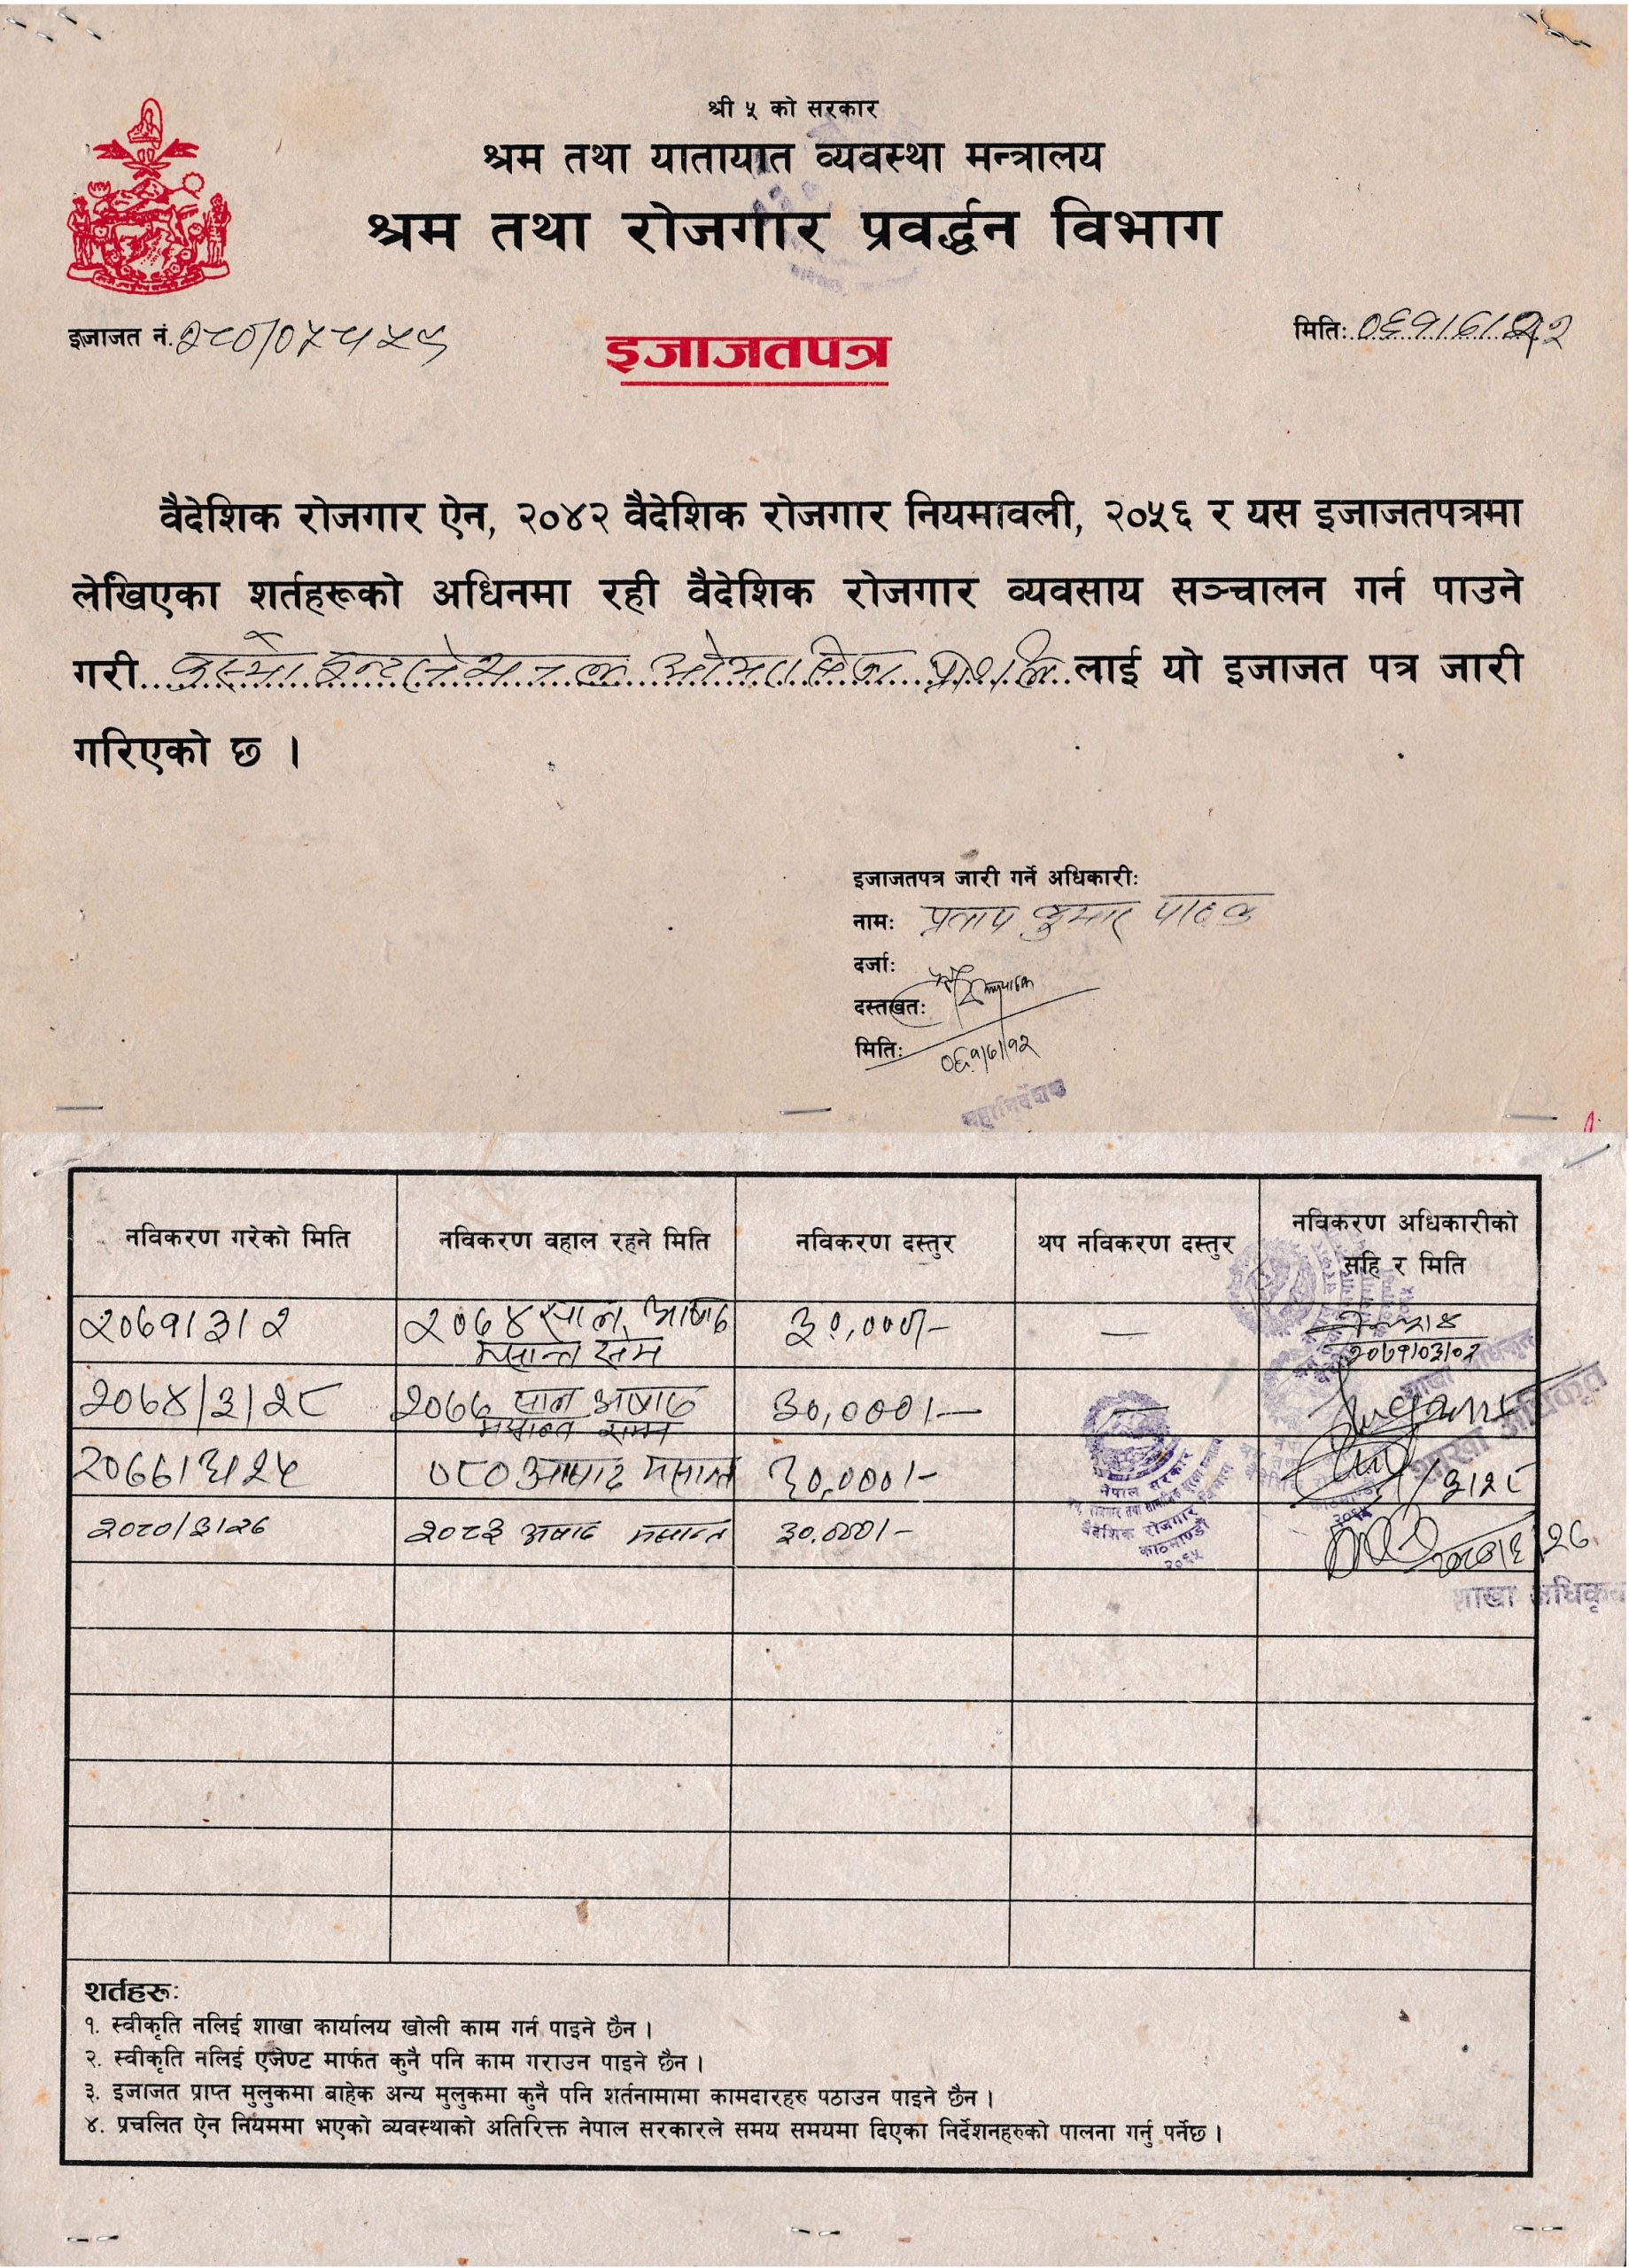 श्री ५ को सरकार
श्रम तथा यातायात व्यवस्था मन्त्रालय
श्रम तथा रोजगार प्रवर्द्धन विभाग
इजाजत नं.
मितिः
इजाजतपत्र
वैदेशिक रोजगार ऐन, २०४२ वैदेशिक रोजगार नियमावली, २०५६ र यस इजाजतपत्रमा
लेखिएका शर्तहरूको अधिनमा रही वैदेशिक रोजगार व्यवसाय सञ्चालन गर्न पाउने
गरी लाई यो इजाजत पत्र जारी
गरिएको छ ।
इजाजतपत्र जारी गर्ने अधिकारीः
नामः प्रताप कुमार पाठक
दर्जाः
दस्तखतः
मितिः ०६१/६/१२
महानिर्देशक
नविकरण गरेको मिति नविकरण वहाल रहने मिति नविकरण दस्तुर थप नविकरण दस्तुर नविकरण अधिकारीको
सहि र मिति
२०७१।३।२ २०७४ साल आषाढ ३०,०००/- —
मसान्त सम्म २०७१/०३/०२
२०७४/३/२८ २०७७ साल अषाढ ३०,०००/- —
मसान्त सम्म
२०७७।३।२५ ०८० आषाढ मसान्त ३०,०००/-
२०८०/३/२७ २०८३ अषाढ मसान्त ३०,०००/-
नेपाल सरकार
वैदेशिक रोजगार विभाग
काठमाण्डौं
२०६५
शाखा अधिकृत
शाखा अधिकृत
शर्तहरूः
१. स्वीकृति नलिई शाखा कार्यालय खोली काम गर्न पाइने छैन ।
२. स्वीकृति नलिई एजेण्ट मार्फत कुनै पनि काम गराउन पाइने छैन ।
३. इजाजत प्राप्त मुलुकमा बाहेक अन्य मुलुकमा कुनै पनि शर्तनामामा कामदारहरु पठाउन पाइने छैन ।
४. प्रचलित ऐन नियममा भएको व्यवस्थाको अतिरिक्त नेपाल सरकारले समय समयमा दिएका निर्देशनहरुको पालना गर्नु पर्नेछ ।